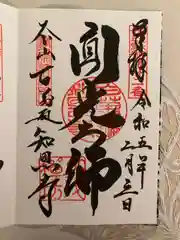 奉拝 令和五年二月三日
圓光大師
本山百万遍知恩寺